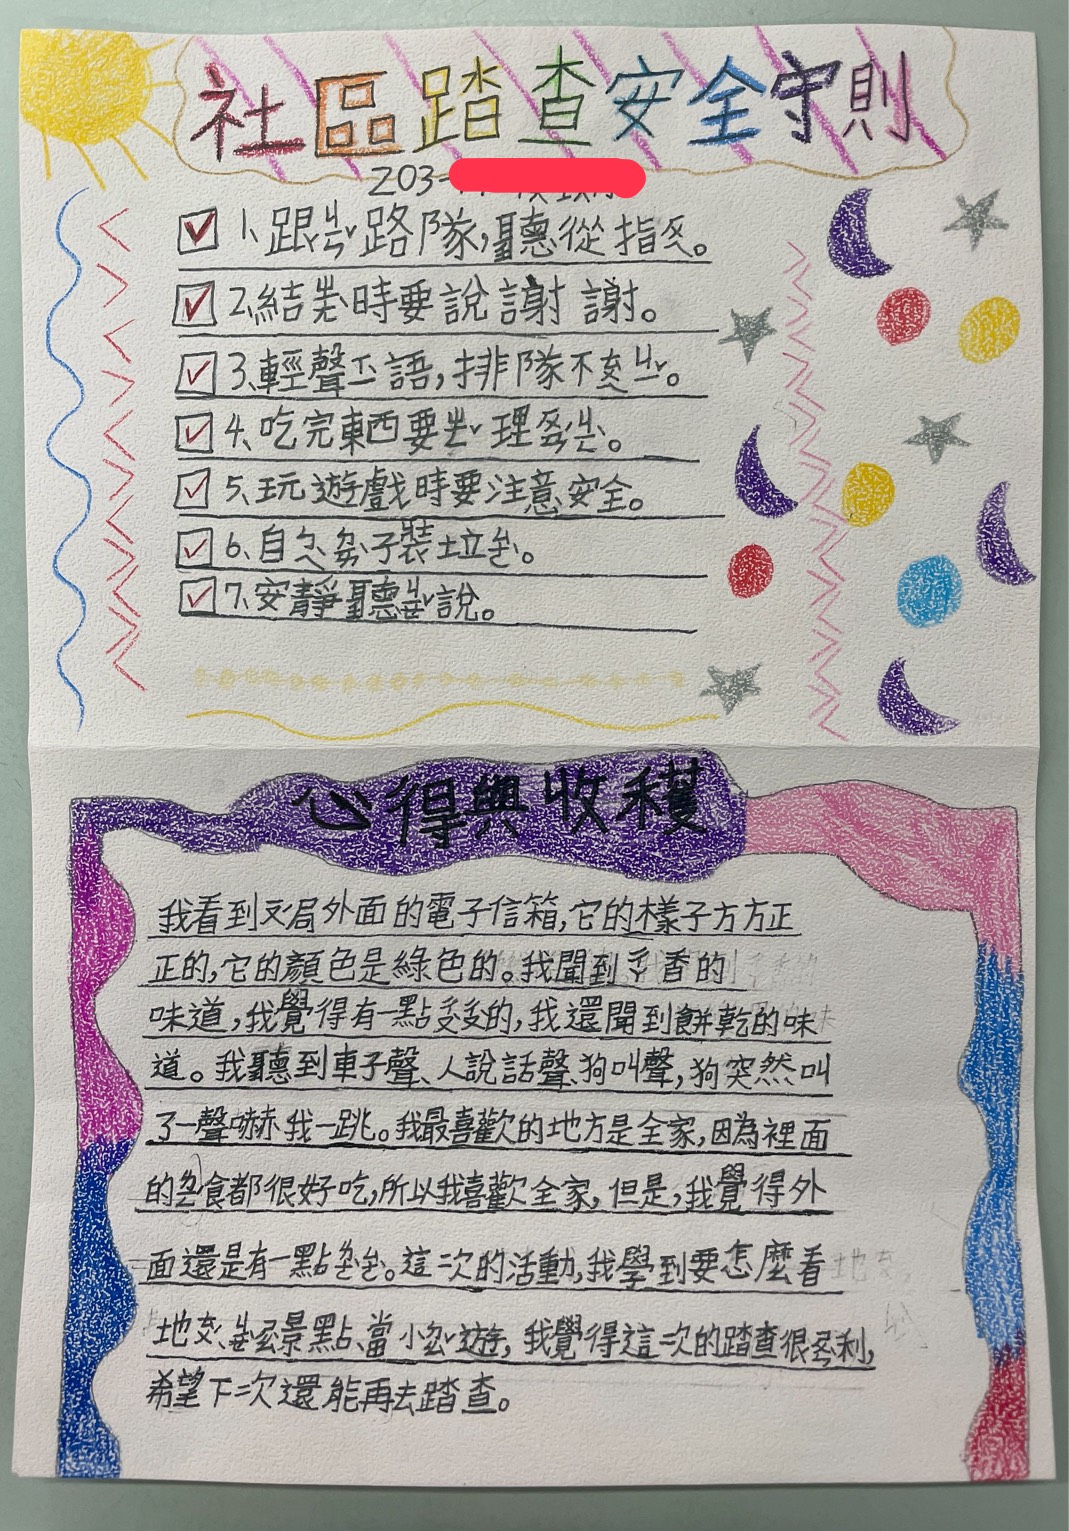 社區踏查安全守則
203-
1、跟ㄕㄤˋ路隊，聽從指ㄉ。
2、結ㄕㄨˋ時要說謝謝。
3、輕聲ㄒ語，排隊不ㄘㄞˇ。
4、吃完東西要ㄓㄥˇ理ㄌㄜˋ。
5、玩遊戲時要注意安全。
6、自ㄅ 子裝垃ㄙㄜˋ。
7、安靜聽 說。
心得與收穫
我看到 局外面的電子信箱，它的樣子方方正
正的，它的顏色是綠色的。我聞到 香的
味道，我覺得有一點 的，我還聞到餅乾的味
道。我聽到車子聲、人說話聲、狗叫聲，狗突然叫
了一聲嚇我一跳。我最喜歡的地方是全家，因為裡面
的 食都很好吃，所以我喜歡全家，但是，我覺得外
面還是有一點 。這次的活動，我學到要怎麼看
地 、 景點、當小 遊，我覺得這次的踏查很 利，
希望下次還能再去踏查。